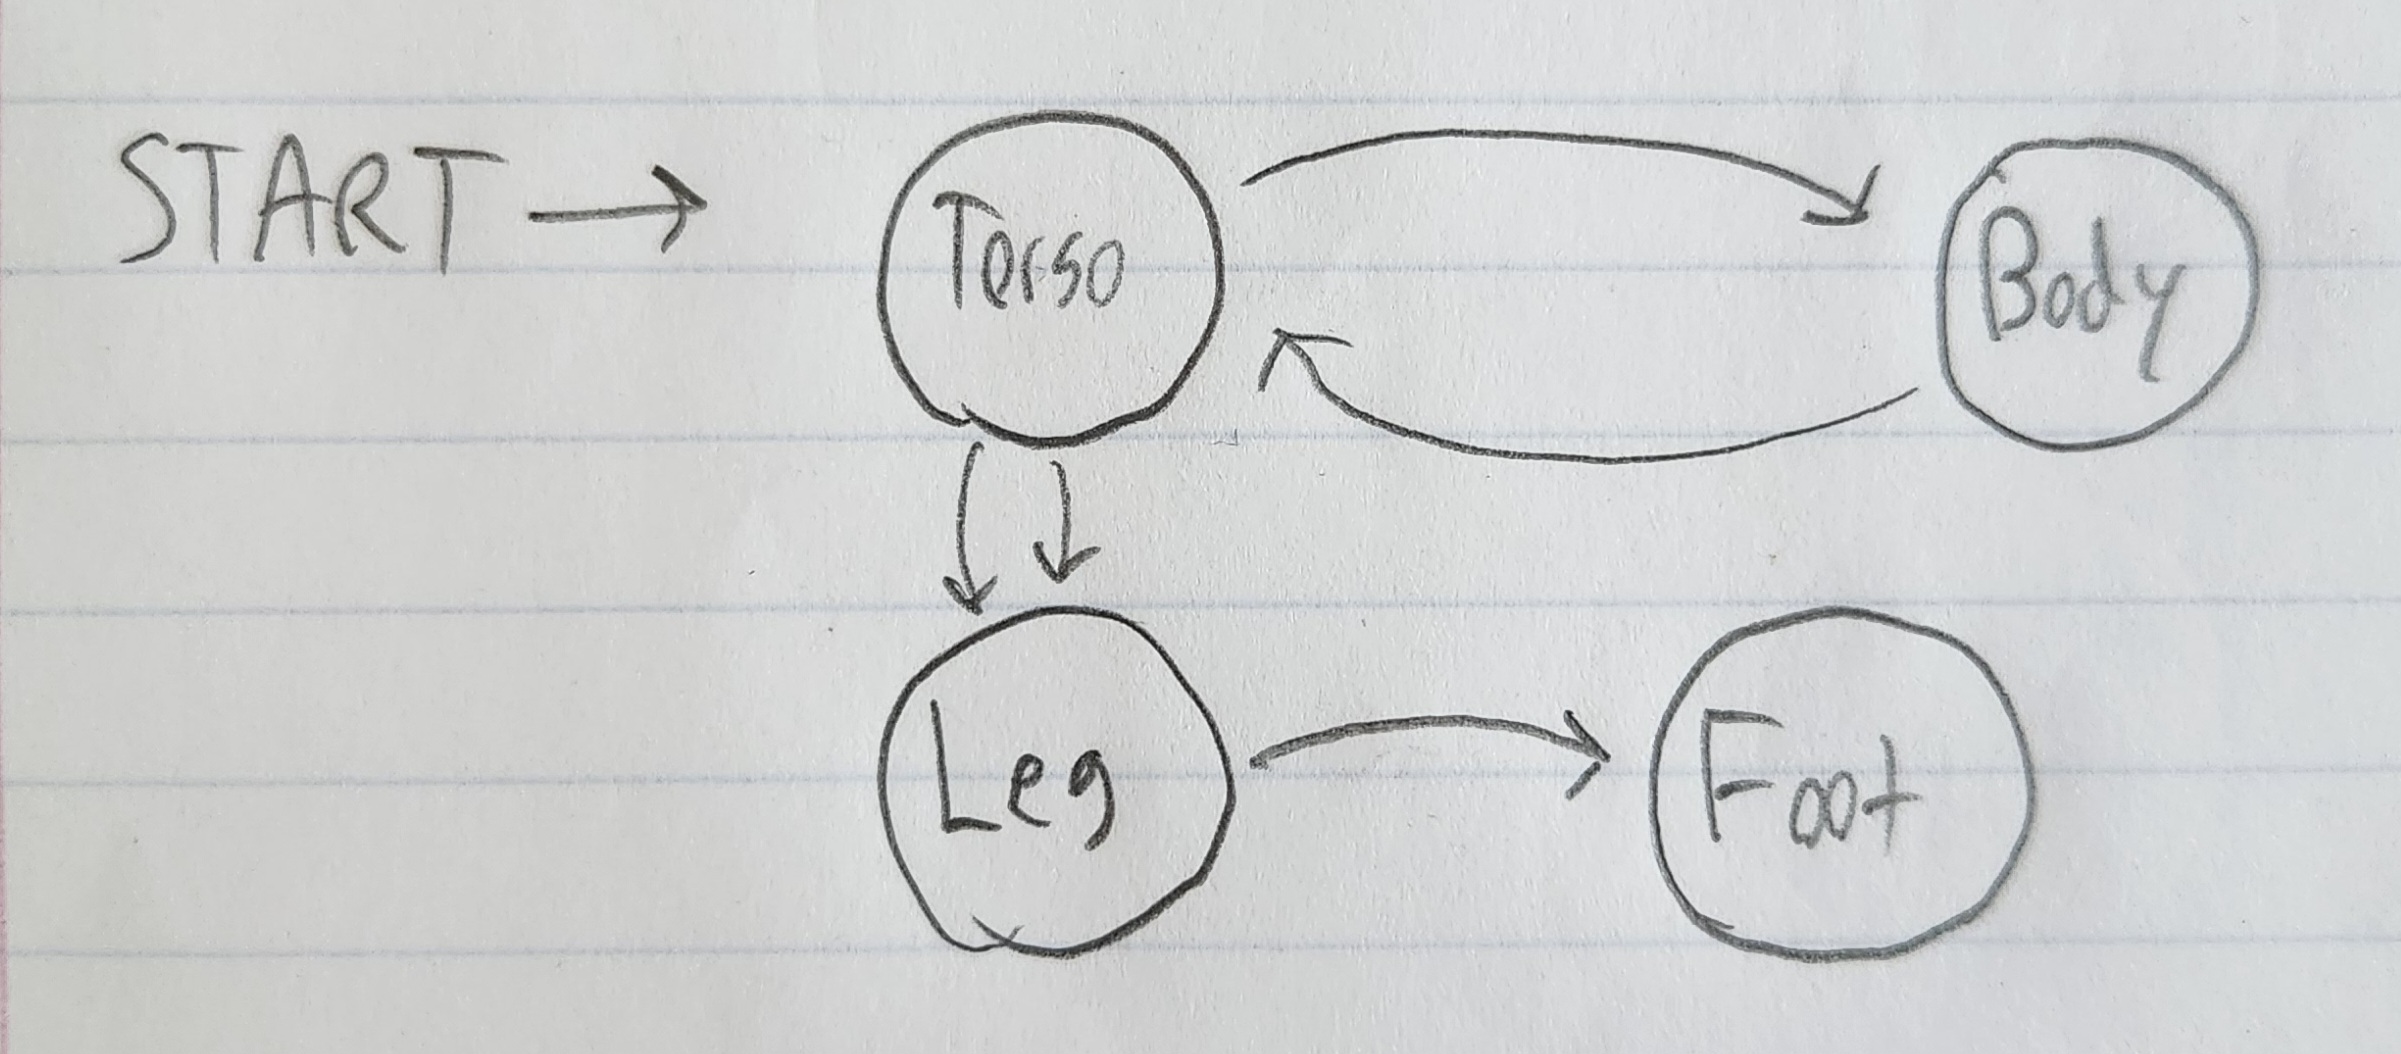 START
Torso
Body
Leg
Foot